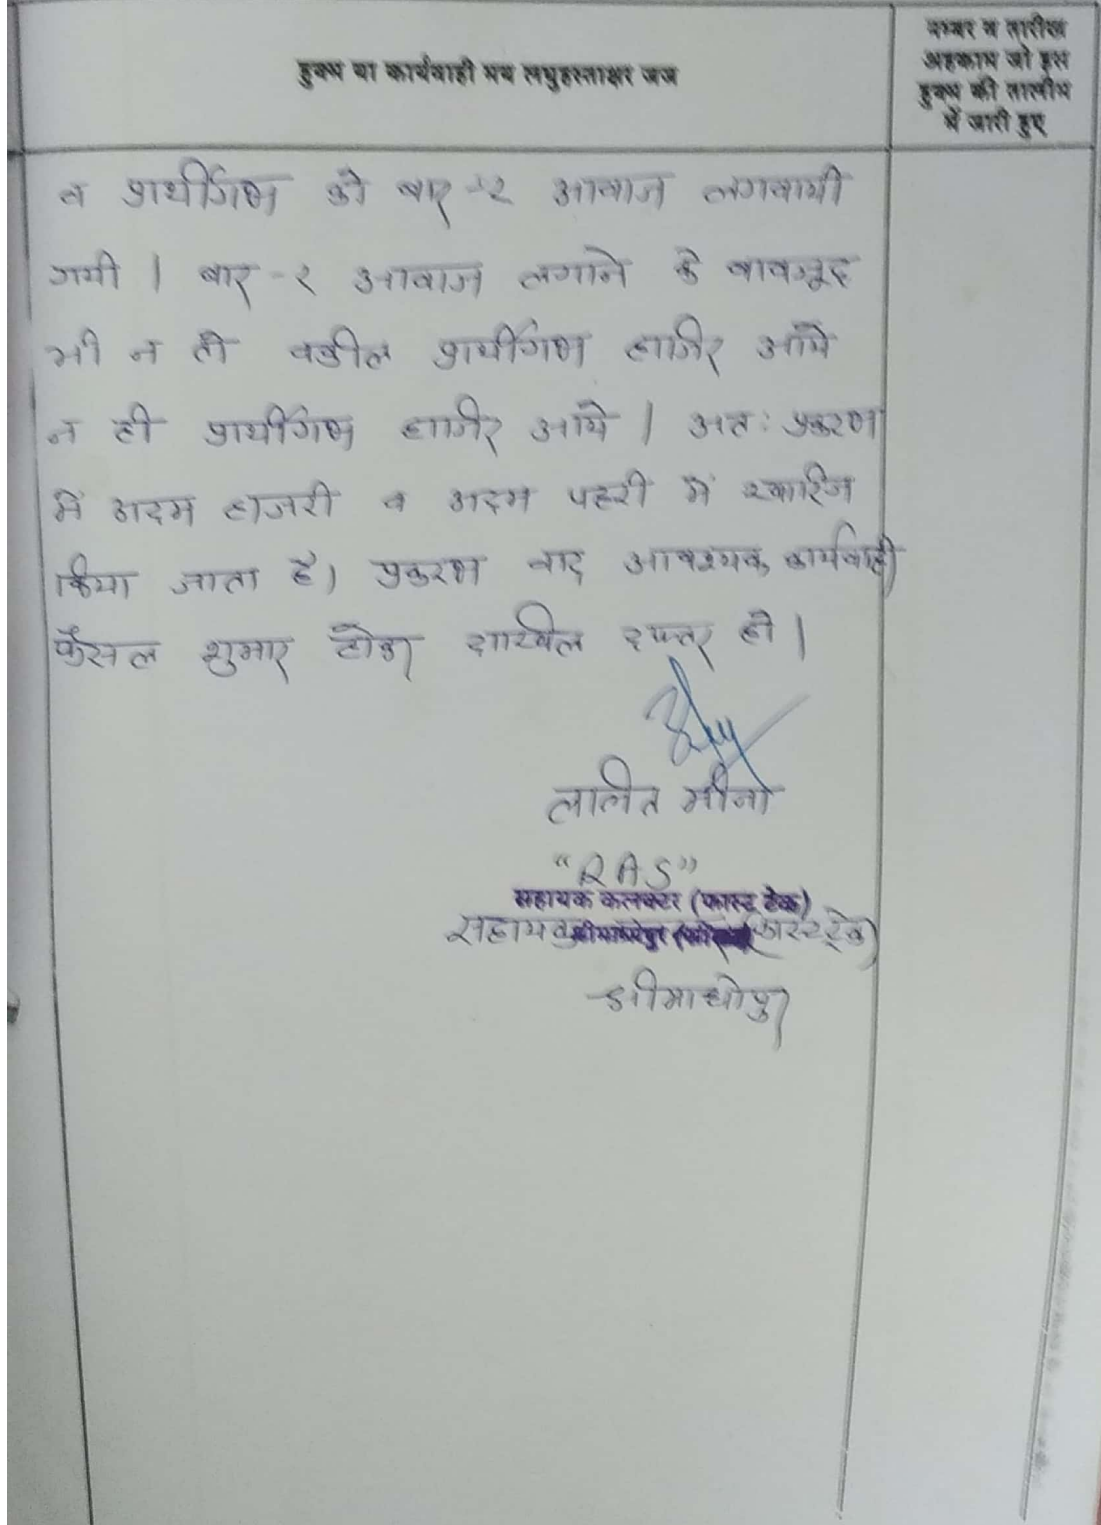 हुक्म या कार्यवाही मय लघुहस्ताक्षर जज
नम्बर व तारीख
अहकाम जो इस
हुक्म की तालीम
में जारी हुए
व प्रार्थीगण को बार-२ आवाज लगवायी
गयी । बार-२ आवाज लगाने के बावजूद
भी न तो वकील प्रार्थीगण हाजिर आये
न ही प्रार्थीगण हाजिर आये । अतः प्रकरण
में अदम हाजरी व अदम पैरवी में खारिज
किया जाता है। प्रकरण बाद आवश्यक कार्यवाही
फैसल शुमार होकर दाखिल दफ्तर हो ।
ललित मीना
"RAS"
सहायक कलक्टर (फास्ट ट्रेक)
सहायक श्रीमाधोपुर (फास्ट ट्रेक)
श्रीमाधोपुर